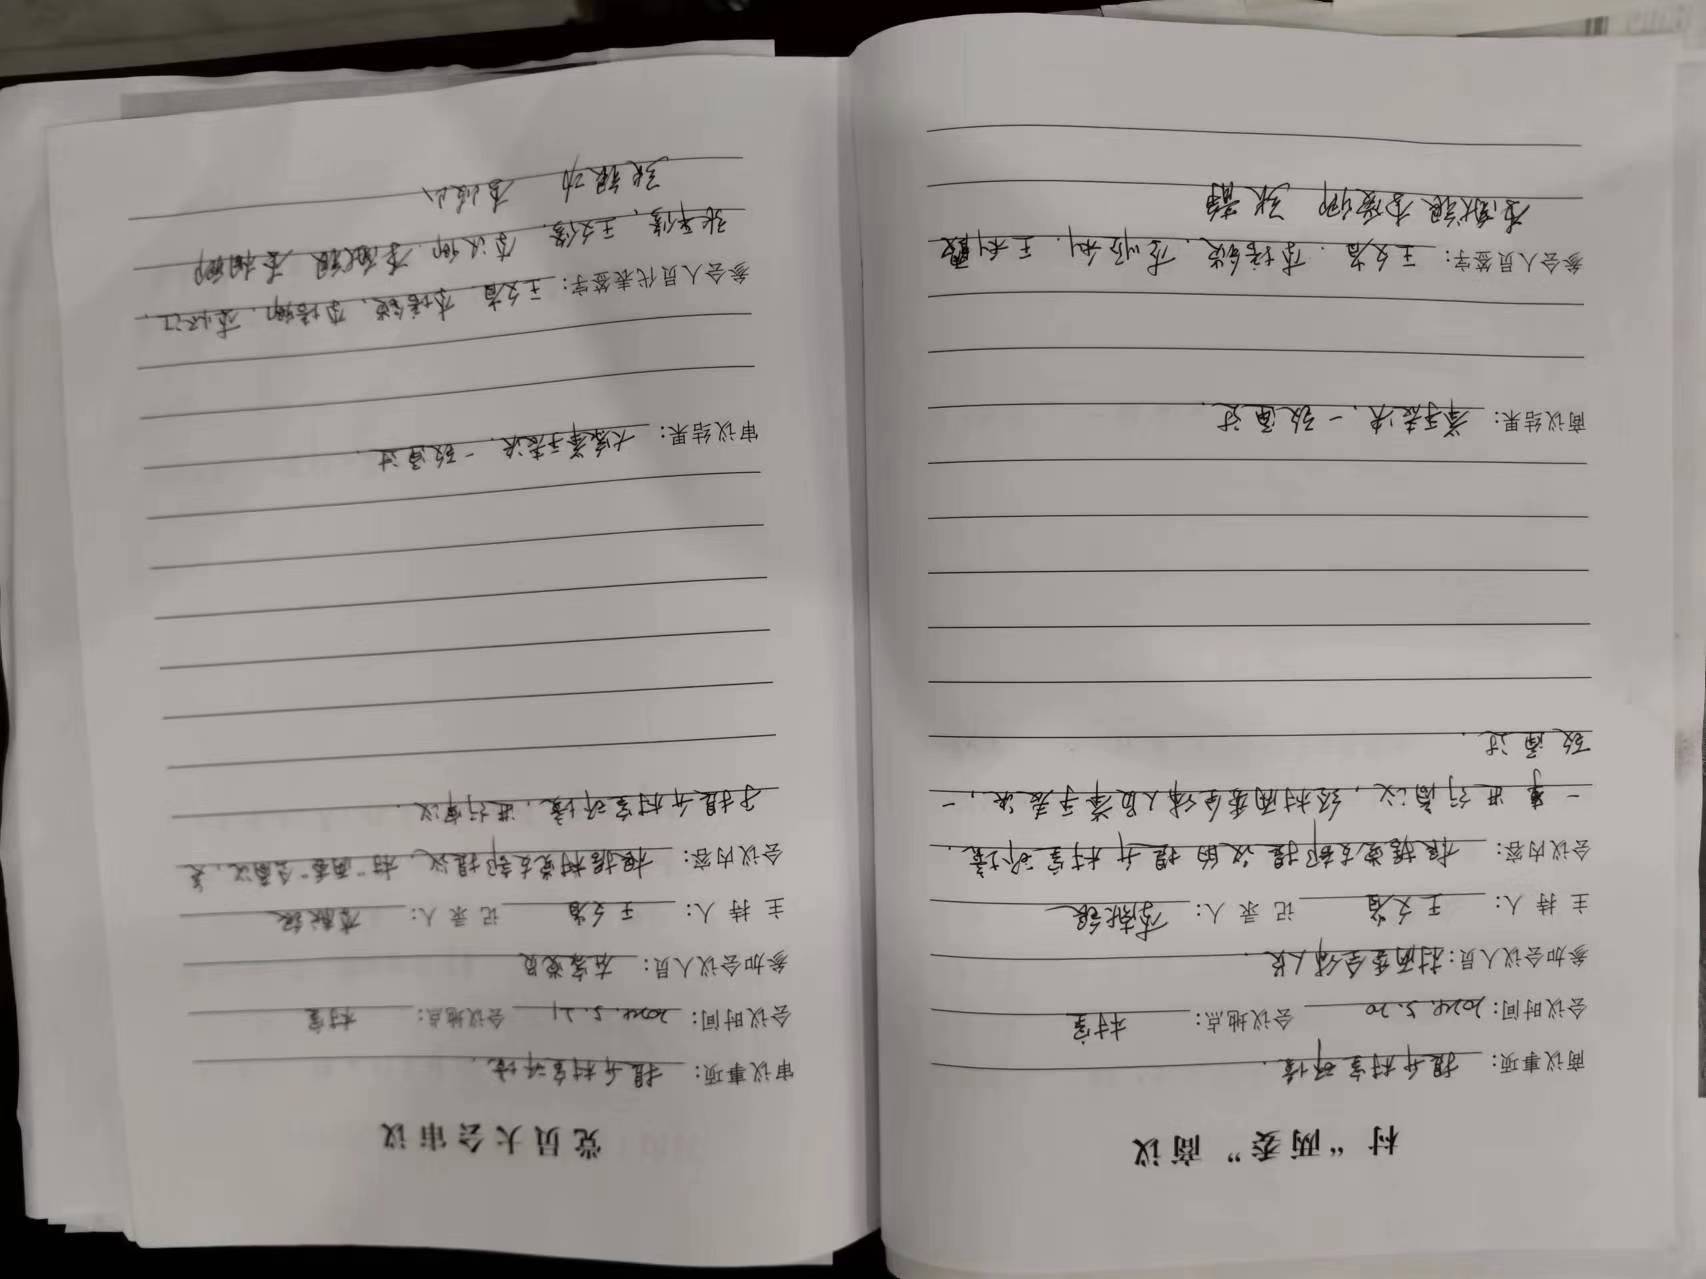 村“两委”商议
商议事项：提升村室环境.
会议时间：2024.5.20 会议地点：村室
参加会议人员：村两委全体人员.
主持人：王文省 记录人：李献银
会议内容：根据党支部提议的提升村室环境.
一事进行商议，经村两委全体人员举手表决，一
致通过.
商议结果：举手表决，一致通过.
参会人员签字：王文省.李培锁.李顺利.王利霞
李献银 李爱卿 张静
党员大会审议
审议事项：提升村室环境.
会议时间：2024.5.21 会议地点：村室
参加会议人员：在家党员
主持人：王文省 记录人：李献银
会议内容：根据村党支部提议，村“两委”会商议，关
于提升村室环境，进行审议.
审议结果：大家举手表决，一致通过.
参会人员代表签字：王文省.李培锁.李培卿.
王文俊.李献银 李相卿
张银功